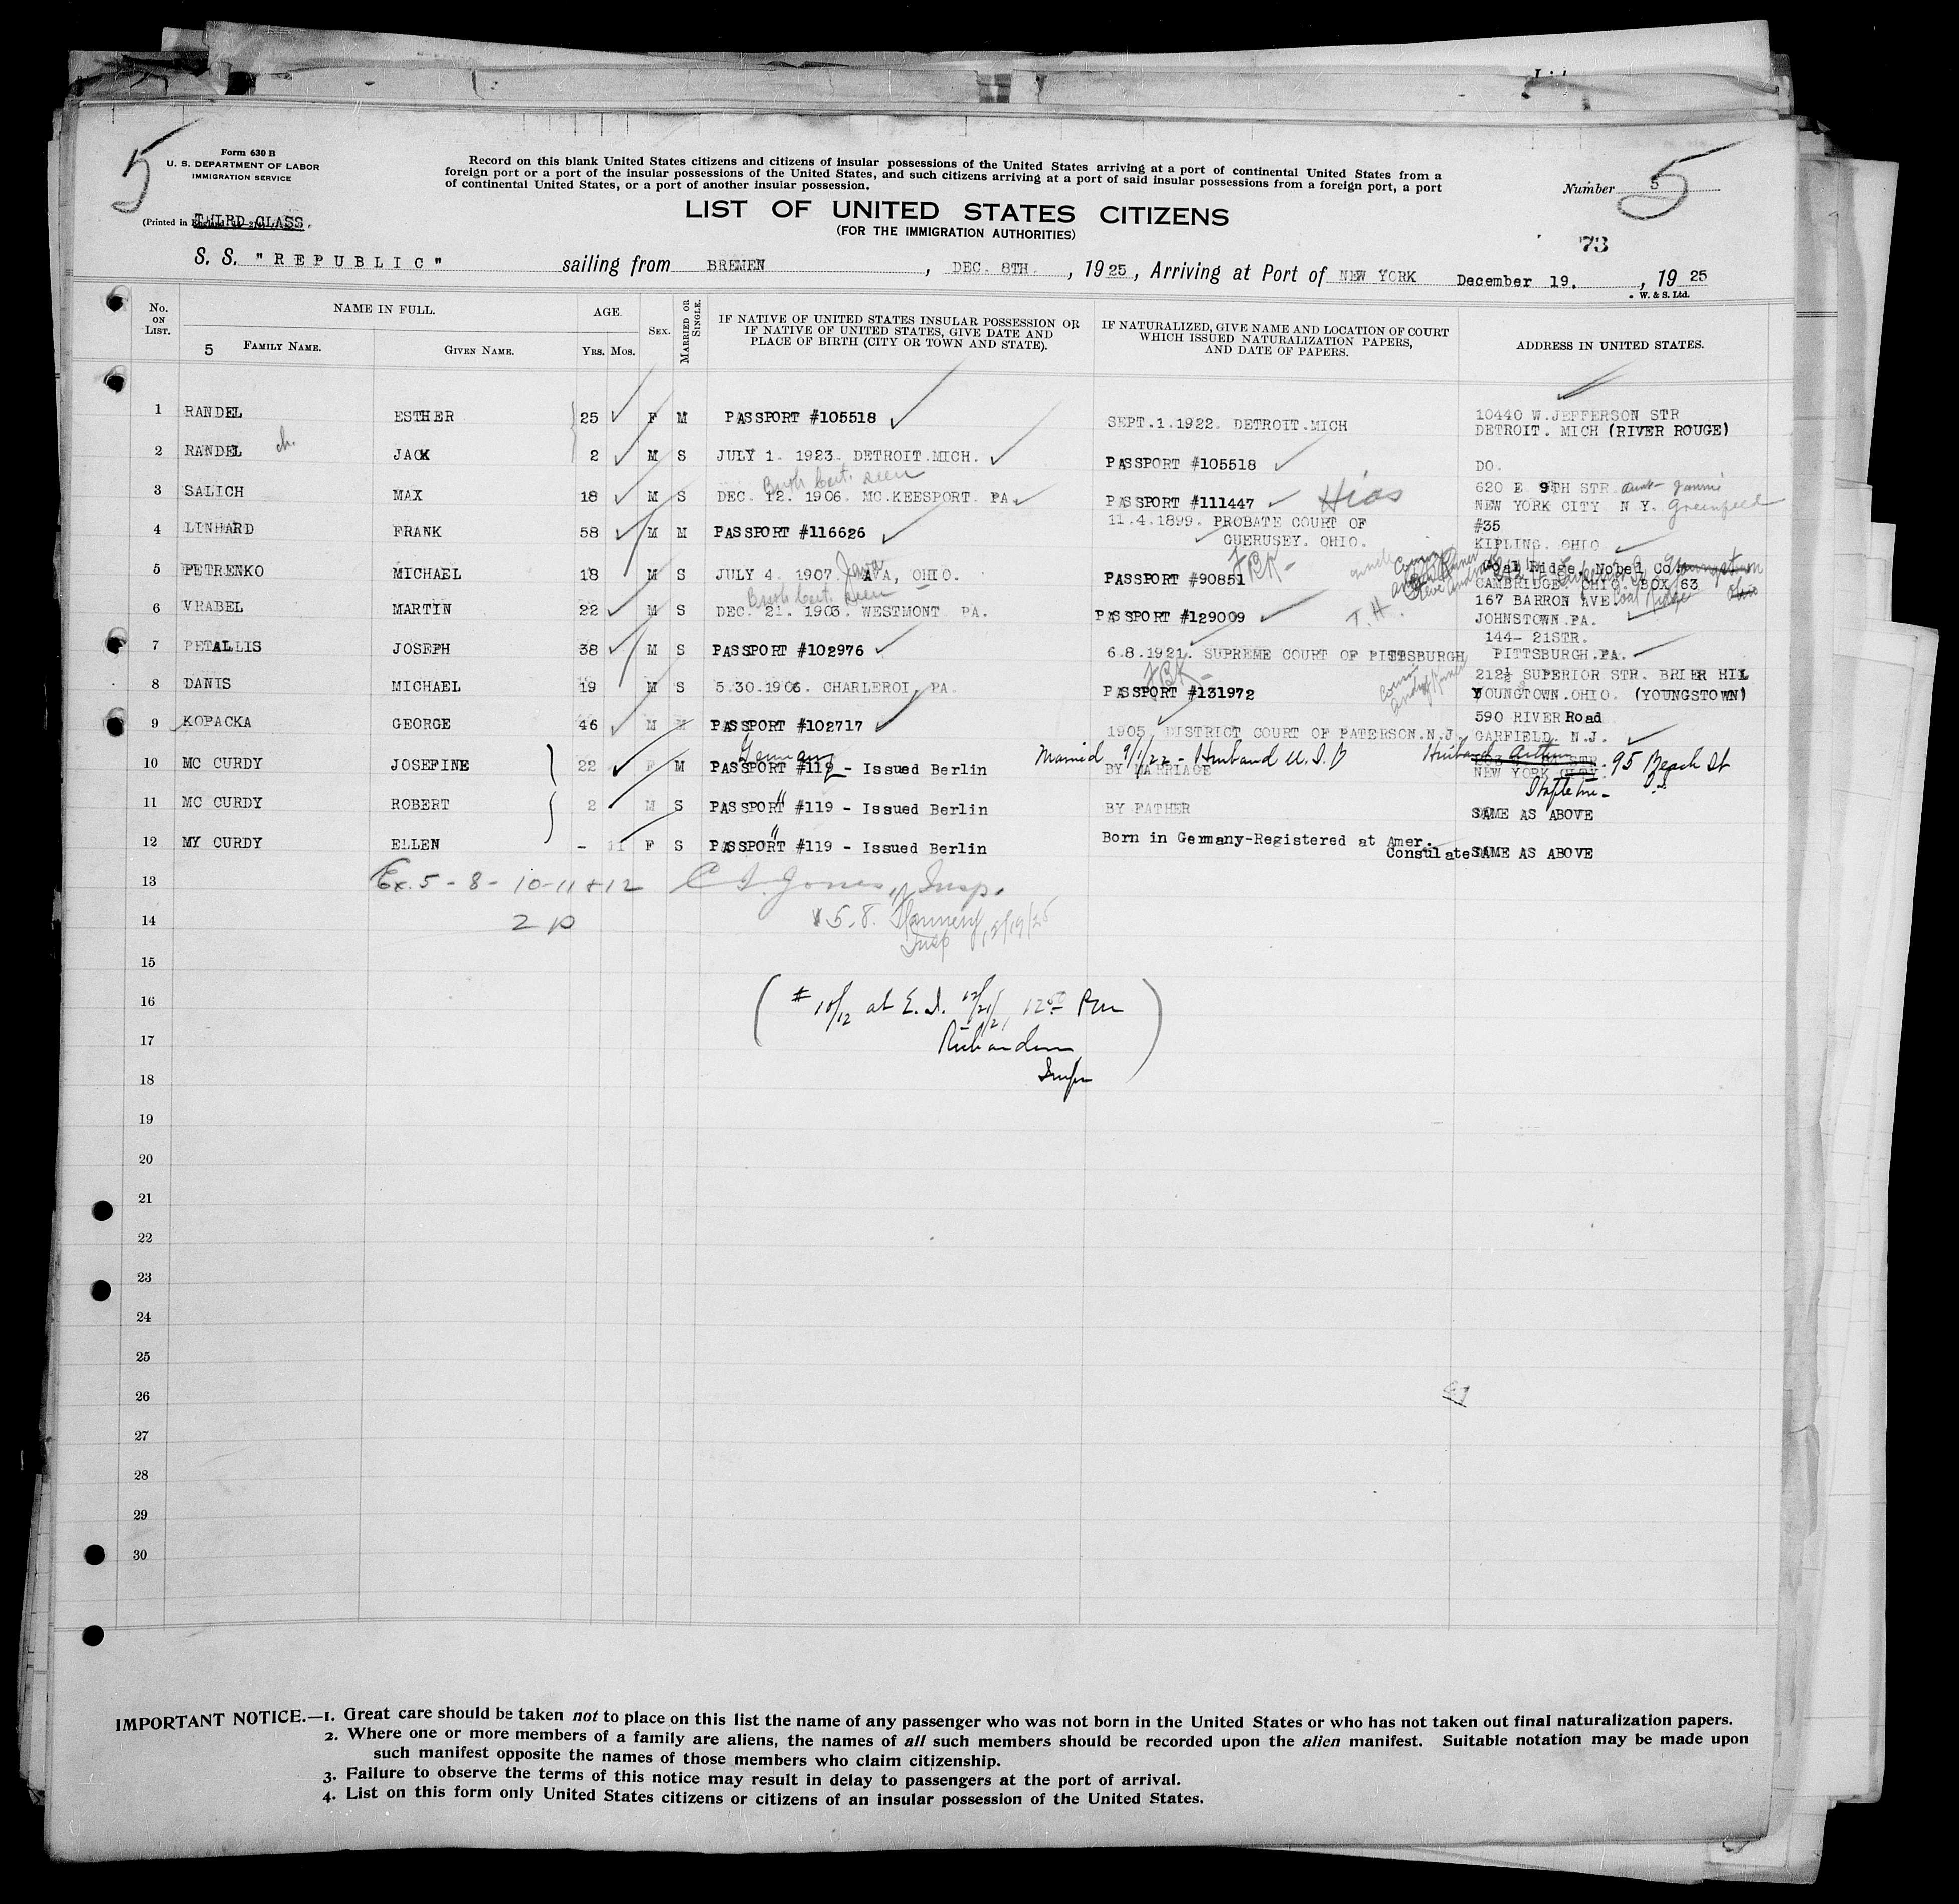 5
Form 630 B
U. S. DEPARTMENT OF LABOR
IMMIGRATION SERVICE
(Printed in
THIRD CLASS.
Record on this blank United States citizens and citizens of insular possessions of the United States arriving at a port of continental United States from a
foreign port or a port of the insular possessions of the United States, and such citizens arriving at a port of said insular possessions from a foreign port, a port
of continental United States, or a port of another insular possession.
Number 5
5
LIST OF UNITED STATES CITIZENS
(FOR THE IMMIGRATION AUTHORITIES)
73
S. S. "REPUBLIC" sailing from BREMEN, DEC. 8TH., 1925, Arriving at Port of NEW YORK December 19., 1925
W. & S. Ltd.
No. ON LIST.
NAME IN FULL.
5 FAMILY NAME.
GIVEN NAME.
AGE.
YRS. MOS.
SEX.
MARRIED OR SINGLE.
IF NATIVE OF UNITED STATES INSULAR POSSESSION OR
IF NATIVE OF UNITED STATES, GIVE DATE AND
PLACE OF BIRTH (CITY OR TOWN AND STATE).
IF NATURALIZED, GIVE NAME AND LOCATION OF COURT
WHICH ISSUED NATURALIZATION PAPERS,
AND DATE OF PAPERS.
ADDRESS IN UNITED STATES.
1 RANDEL ESTHER 25 F M PASSPORT #105518 SEPT.1.1922. DETROIT.MICH 10440 W.JEFFERSON STR
DETROIT. MICH (RIVER ROUGE)
2 RANDEL ch. JACK 2 M S JULY 1. 1923. DETROIT.MICH. PASSPORT #105518 DO.
Birth Cert. seen
3 SALICH MAX 18 M S DEC. 12. 1906. MC.KEESPORT. PA PASSPORT #111447 Hias 620 E 9TH STR aunt
NEW YORK CITY N Y. Greenfeld
4 LINHARD FRANK 58 M M PASSPORT #116626 11.4.1899. PROBATE COURT OF
GUERUSEY. OHIO.
#35
KIPLING. OHIO
5 PETRENKO MICHAEL 18 M S JULY 4. 1907. Java AVA, OHIO. PASSPORT #90851 JBK Ridge, Nobel Co
CAMBRIDGE, OHIO. BOX 63
Birth Cert. seen
6 VRABEL MARTIN 22 M S DEC. 21. 1903. WESTMONT PA. PASSPORT #129009 T.H. 167 BARRON AVE Coal Ridge Ohio
JOHNSTOWN.PA.
7 PETALLIS JOSEPH 38 M S PASSPORT #102976 6.8.1921. SUPREME COURT OF PITTSBURGH 144- 21STR.
PITTSBURGH.PA.
8 DANIS MICHAEL 19 M S 5.30.1906. CHARLEROI, PA. JBK PASSPORT #131972 212½ SUPERIOR STR. BRIER HIL
YOUNGTOWN.OHIO. (YOUNGSTOWN)
9 KOPACKA GEORGE 46 M M PASSPORT #102717 1905. DISTRICT COURT OF PATERSON.N.J. 590 RIVER Road
GARFIELD. N.J.
10 MC CURDY JOSEFINE 22 F M Germany PASSPORT #119 - Issued Berlin Married 9/1/22 - Husband U.S.B
BY MARRIAGE
Husband Arthur
NEW YORK CITY. 95 Beach St
Stapleton S.I.
11 MC CURDY ROBERT 2 M S PASSPORT " #119 - Issued Berlin BY FATHER SAME AS ABOVE
12 MY CURDY ELLEN - 11 F S PASSPORT " #119 - Issued Berlin Born in Germany-Registered at Amer.
Consulate SAME AS ABOVE
13 Ex. 5 - 8 - 10-11 & 12 C S. Jones, Insp.
14 2 5.8. Insp 12/19/25
15
16 (# 10/12 at E.I. 12/21/21, 12 50 Pm
17 Richardson
18 Insp)
19
20
21
22
23
24
25
26
27
28
29
30
IMPORTANT NOTICE.—1. Great care should be taken not to place on this list the name of any passenger who was not born in the United States or who has not taken out final naturalization papers.
2. Where one or more members of a family are aliens, the names of all such members should be recorded upon the alien manifest. Suitable notation may be made upon
such manifest opposite the names of those members who claim citizenship.
3. Failure to observe the terms of this notice may result in delay to passengers at the port of arrival.
4. List on this form only United States citizens or citizens of an insular possession of the United States.